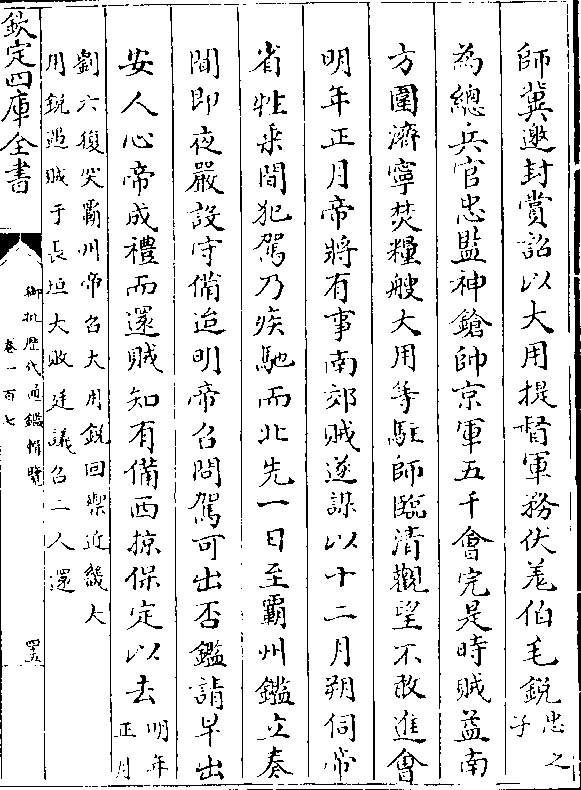 師冀邀封賞詔以大用提督軍務伏羌伯毛銳忠之子
為總兵官忠監神鎗帥京軍五千會完是時賊益南
方圍濟寧焚糧艘大用等駐師臨清觀望不敢進會
明年正月帝將有事南郊賊遂謀以十二月朔伺帝
省牲乗間犯駕乃疾馳而北先一日至霸州鑑立奏
聞即夜嚴設守備迨明帝召問駕可出否鑑請早出
安人心帝成禮而還賊知有備西掠保定以去明年正月
劉六復突霸州帝召大用銳回禦近畿大
用銳遇賊于長垣大敗廷議召二人還
欽定四庫全書
御批歷代通鑑輯覽
卷一百七
四五